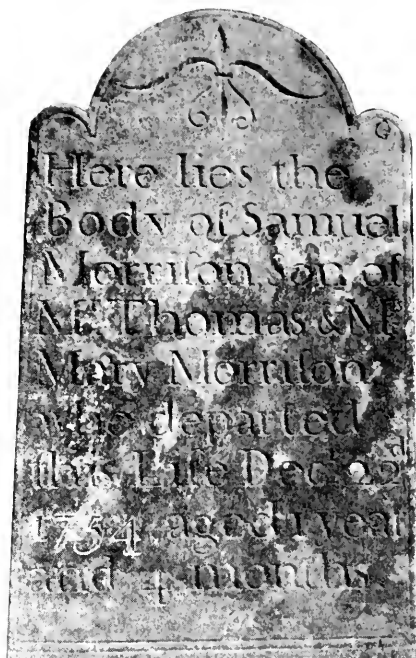 Here lies the
Body of Samuel
Morriſon, Son of
Mr. Thomas & Mrs
Mary Morriſon,
who departed
this Life Decr. 22d
1754, aged 1 year
and 4 months